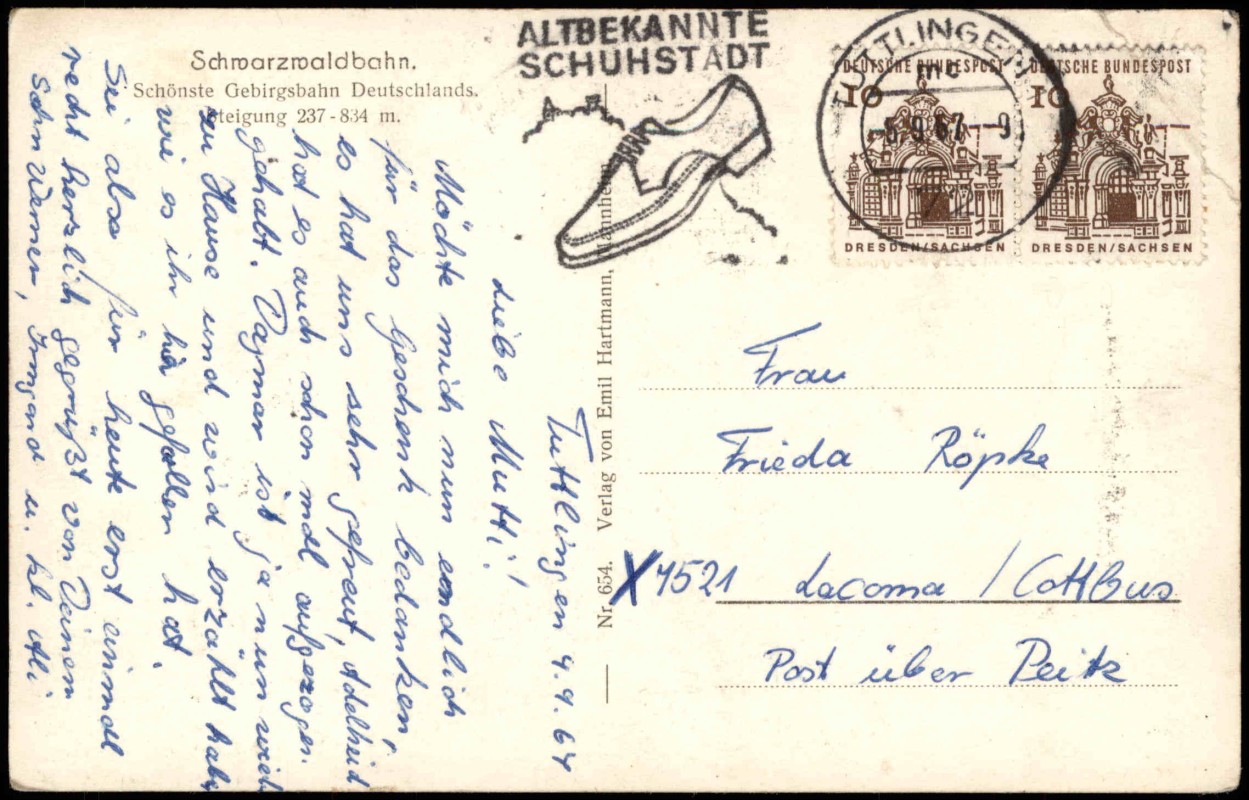 Schwarzwaldbahn.
Schönste Gebirgsbahn Deutschlands.
Steigung 237-834 m.
ALTBEKANNTE
SCHUHSTADT
TUTTLINGEN
mc
-5.9.67 -9
DEUTSCHE BUNDESPOST
10
DRESDEN/SACHSEN
DEUTSCHE BUNDESPOST
10
DRESDEN/SACHSEN
Tuttlingen 4.9.67
Liebe Mutti!
Möchte mich nun endlich
für das Geschenk bedanken,
es hat uns sehr gefreut, Adelheid
hat es auch schon mal aufgezogen
gehabt. Dagmar ist ja nun wieder
zu Hause und wird erzählt haben
wie es ihr hier gefallen hat.
Sei also für heute erst einmal
recht herzlich gegrüßt von Deinem
Sohn Werner, Irmgard u. kl. Adi
Nr. 654. Verlag von Emil Hartmann, Mannheim
Frau
Frieda Röpke
X 7521 Lacoma / Cottbus
Post über Peitz